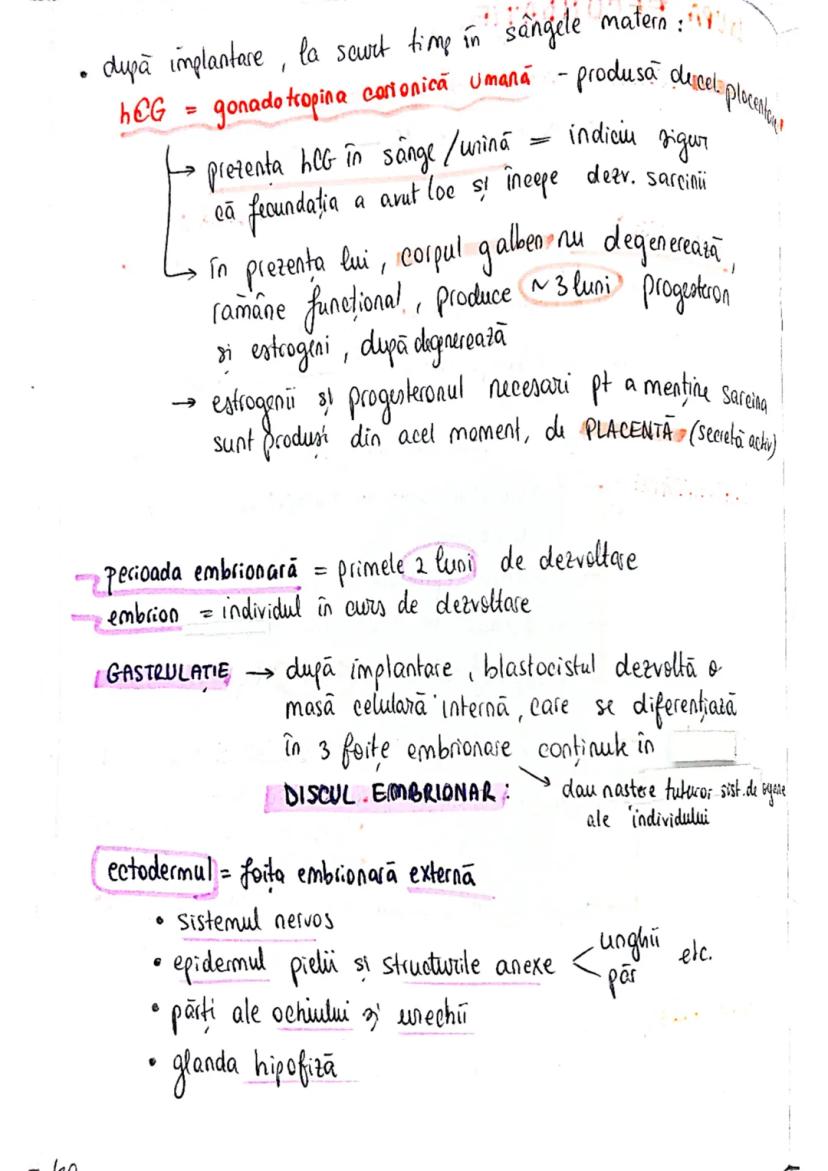 • după implantare, la scurt timp în sângele matern:
hCG = gonadotropina corionică umană - produsă de cel. placentare
→ prezența hCG în sânge/urină = indiciu sigur
că fecundația a avut loc și începe dezv. sarcinii
→ în prezența lui, corpul galben nu degenerează,
rămâne funcțional, produce ~3 luni progesteron
și estrogeni, după degenerează
→ estrogenii și progesteronul necesari pt a menține sarcina
sunt produși din acel moment, de PLACENTĂ (secretă activ)
perioada embrionară = primele 2 luni de dezvoltare
embrion = individul în curs de dezvoltare
GASTRULAȚIE → după implantare, blastocistul dezvoltă o
masă celulară internă, care se diferențiază
în 3 foițe embrionare conținute în
DISCUL EMBRIONAR: → dau naștere tuturor sist. de organe
ale individului
ectodermul = foița embrionară externă
• sistemul nervos
• epidermul pielii și structurile anexe < unghii păr etc.
• părți ale ochiului și urechii
• glanda hipofiză